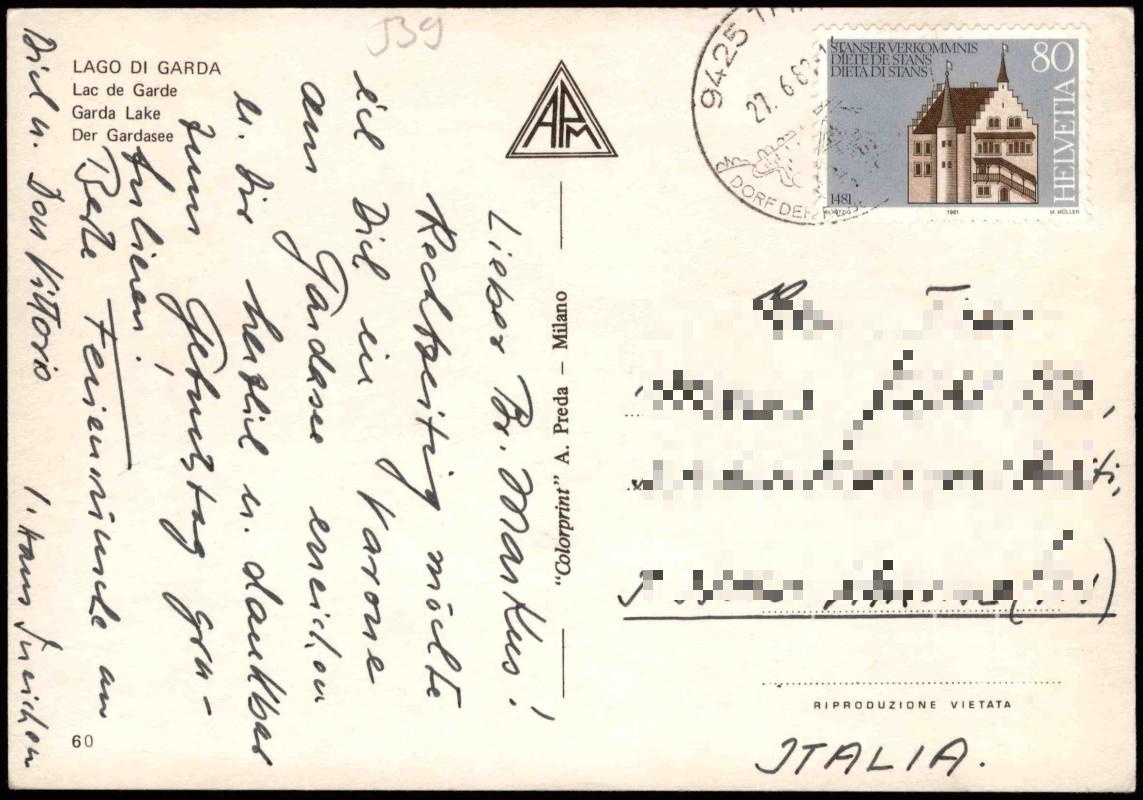 LAGO DI GARDA
Lac de Garde
Garda Lake
Der Gardasee
539
Lieber Br. Markus!
Rechtzeitig möchte
ich Dich in Karone
am Gardasee erreichen
u. Dir herzlich u. dankbar
zum Geburtstag gra-
tulieren!
Beste Ferienwünsche an
Dich u. Don Vittorio
60
APM
"Colorprint" A. Preda – Milano
9425
27.6.8
DORF DER
STANSER VERKOMMNIS
DIETE DE STANS
DIETA DI STANS
80
HELVETIA
1481
1981
M. MÜLLER
RIPRODUZIONE VIETATA
ITALIA.